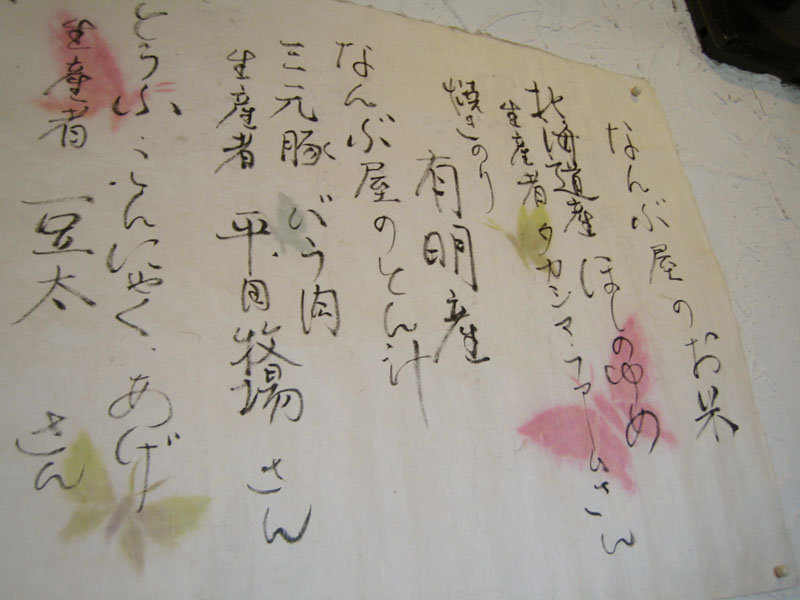 なんぶ屋のお米
北海道産 ほしのゆめ
生産者 タカシマ・ファームさん
焼きのり
有明産
なんぶ屋のとん汁
三元豚 バラ肉
生産者 平田牧場 さん
とうふ・こんにゃく・あげ
生産者 豆太 さん